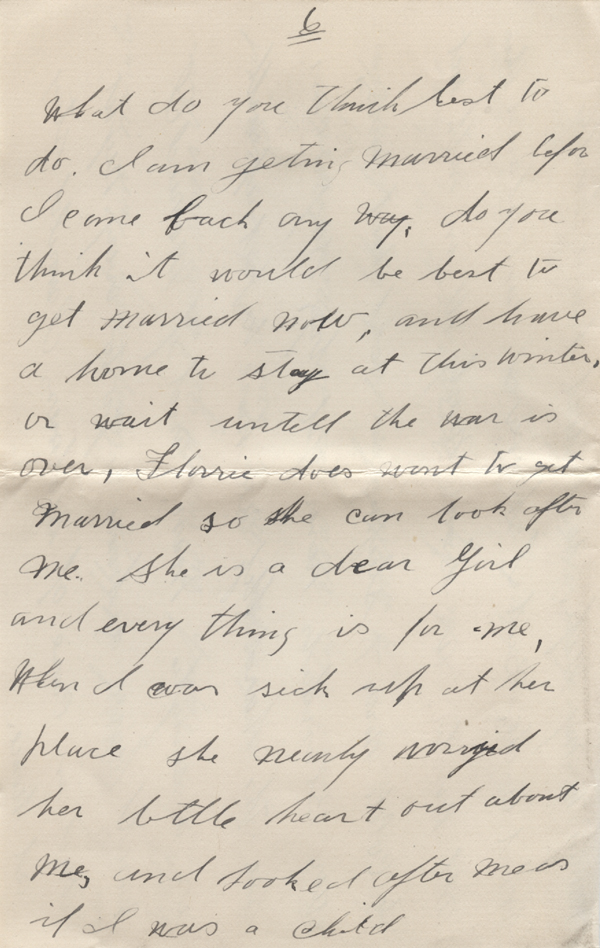 6
What do you think best to
do. I am geting Married befor
I come back any way, do you
think it would be best to
get married now, and have
a home to stay at this winter,
or wait untell the war is
over, Florrie does want to get
Married so she can look after
me. She is a dear Girl
and every thing is for me,
When I was sick up at her
place she nearly worried
her little heart out about
me, and looked after me as
if I was a child